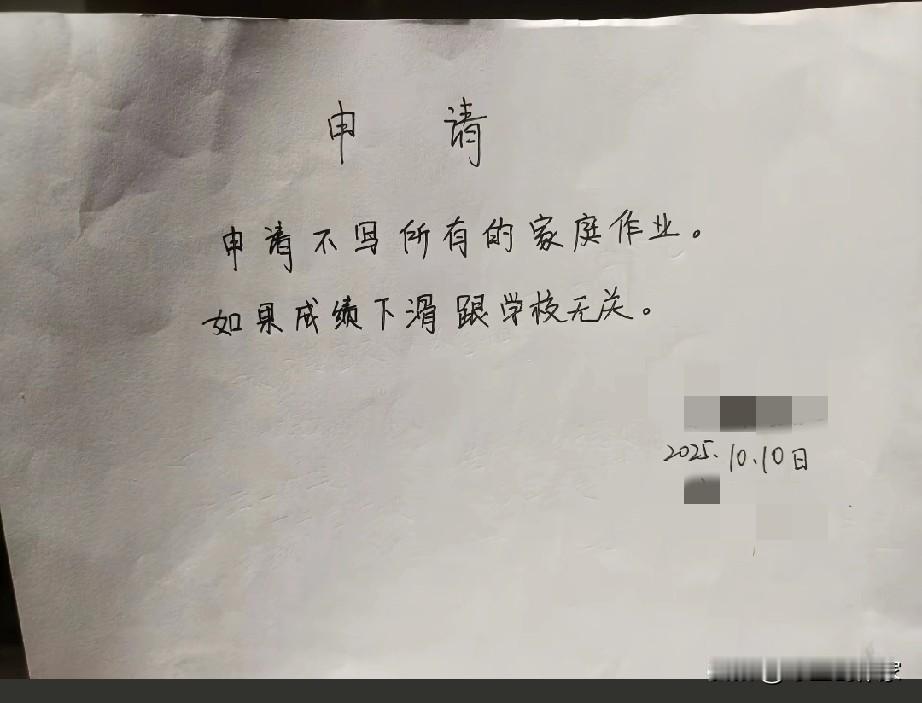 申 请
申请不写所有的家庭作业。
如果成绩下滑跟学校无关。
2025.10.10日